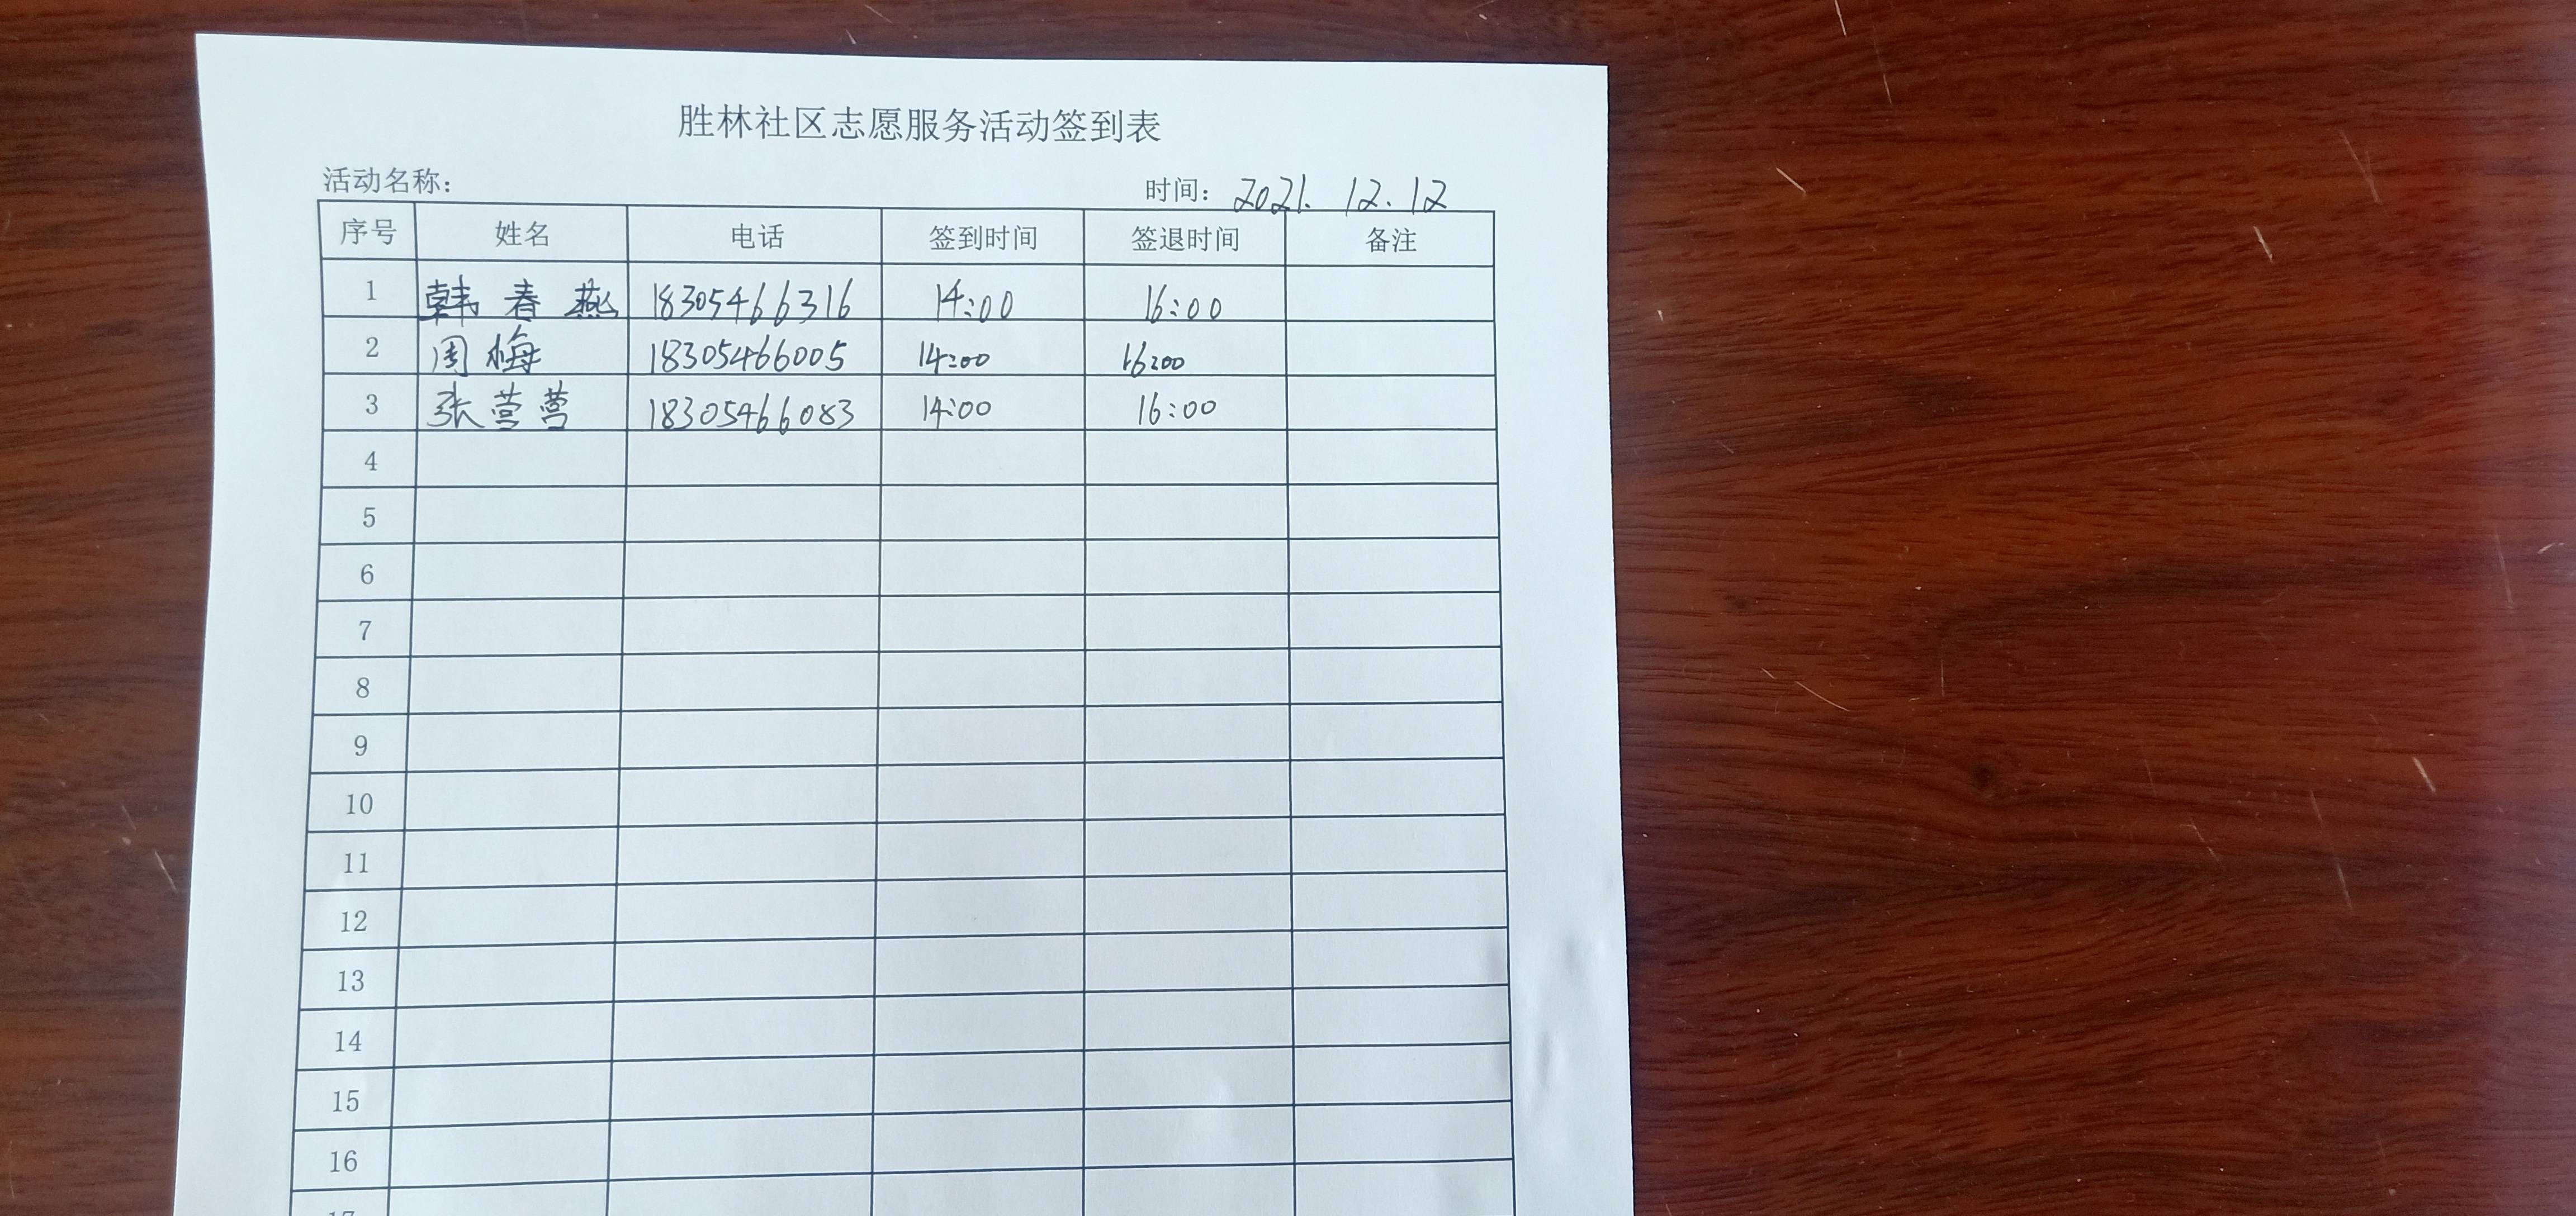 胜林社区志愿服务活动签到表
活动名称： 时间：2021.12.12
序号 姓名 电话 签到时间 签退时间 备注
1 韩春燕 18305466316 14:00 16:00
2 周梅 18305466005 14:00 16:00
3 张营营 18305466083 14:00 16:00
4
5
6
7
8
9
10
11
12
13
14
15
16
17